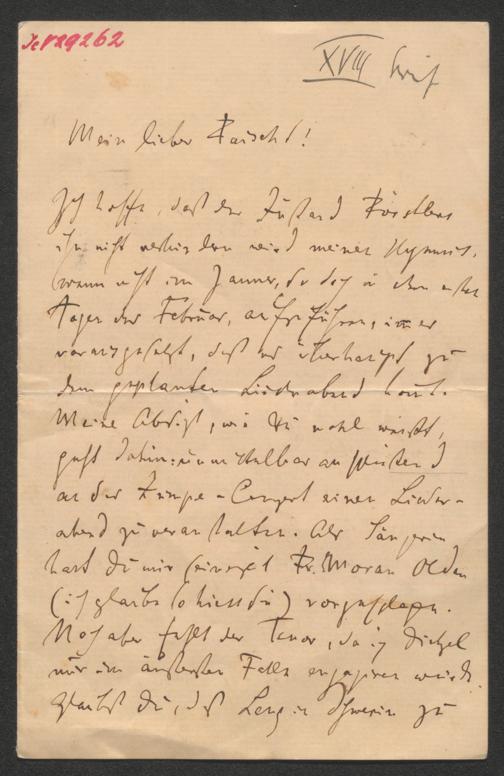 XVIII
Mein lieber
Ich hoffe, daß der Zustand Röstlers
ihn nicht verhindern wird meinen Hymnus,
wenn nicht im Januar, so doch in den ersten
Tagen des Februar, aufzuführen, immer
vorausgesetzt, daß es überhaupt zu
dem geplanten Liederabend kommt.
Meine Absicht, wie Du wohl weißt,
geht dahin: unmittelbar anschließend
an das Concert einen Lieder-
abend zu veranstalten. Als Sängerin
hast Du mir seinerzeit Fr. Moran Olden
(ich glaube so hiess sie) vorgeschlagen.
Noch aber fehlt der Tenor, da ich Diezel
nur im äußersten Falle engagieren würde.
Glaubst Du, daß Lang in Schwerin zu